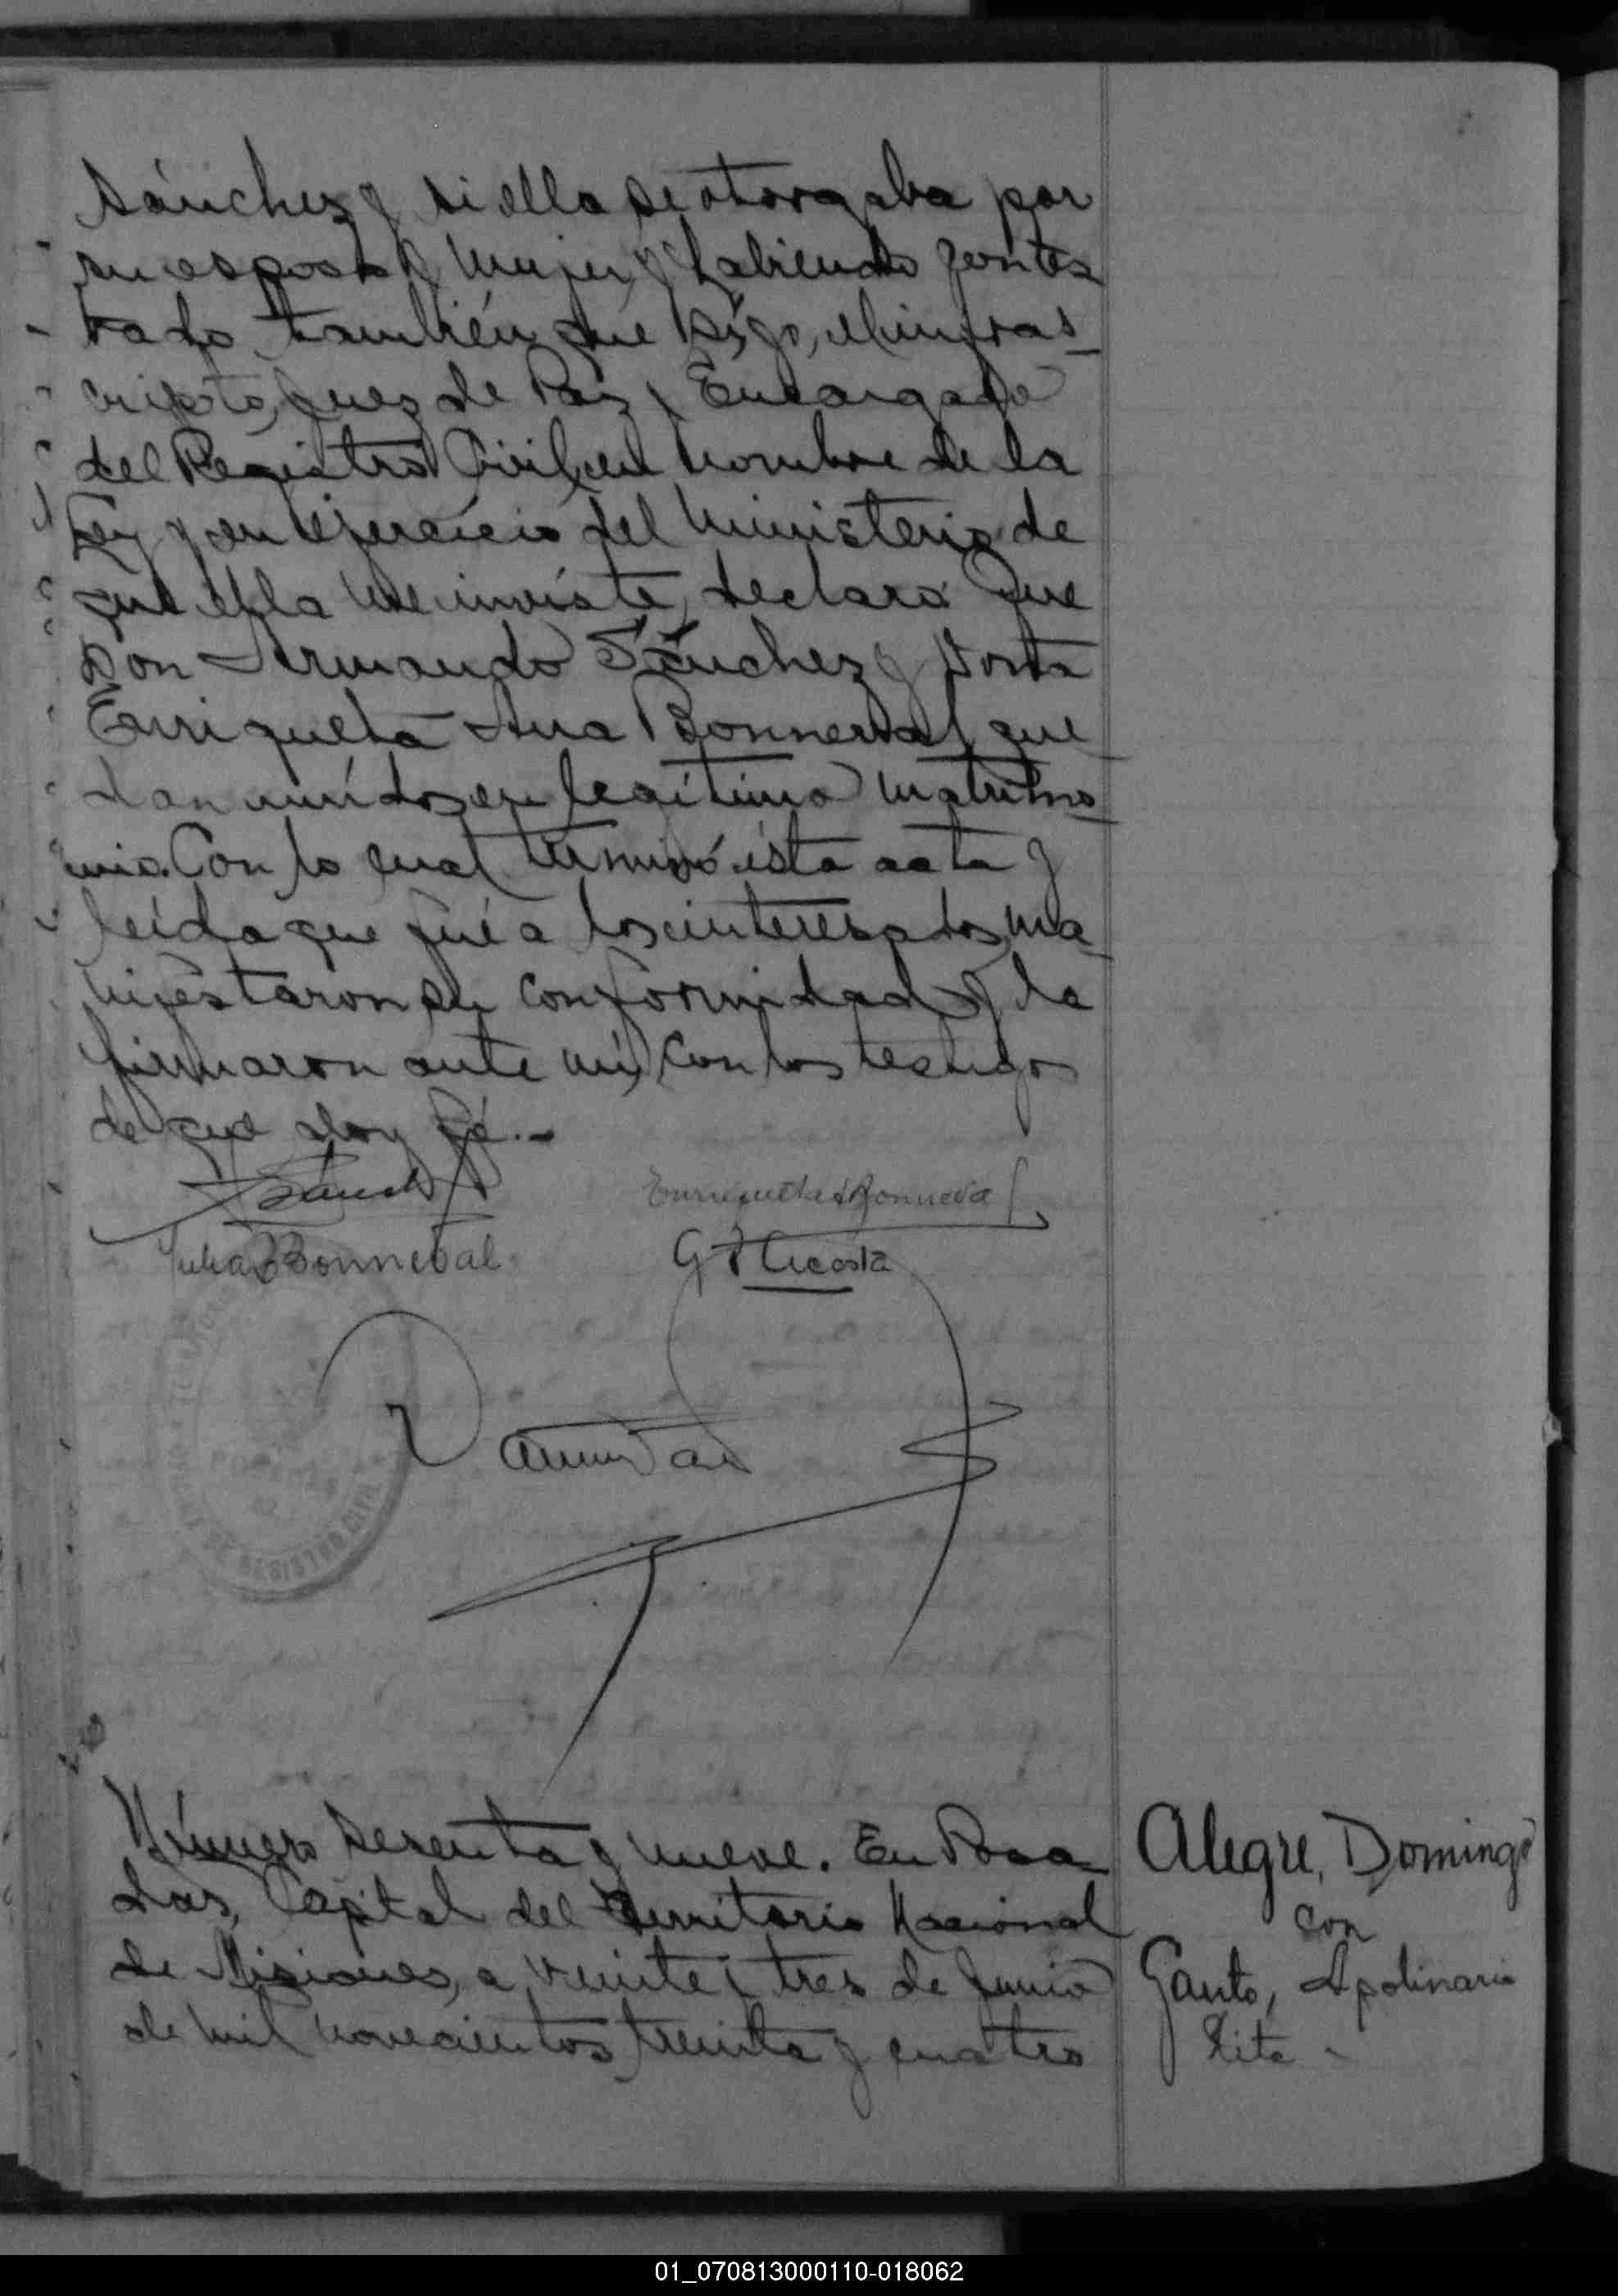 Sánchez y si ella se otorgaba por
su esposa y mujer, y habiendo contes
tado también que sí, yo, el infras_
cripto, Juez de Paz y Encargado
del Registro Civil, en nombre de la
Ley y en ejercicio del ministerio de
que ella me inviste, declaro que
Don Armando Sánchez y Doña
Enriqueta Ana Bonneval que_
dan unidos en legítimo matrimo_
nio. Con lo cual terminó ésta acta y
leída que fué a los interesados, ma_
nifestaron su conformidad y la
firmaron ante mí, con los testigos
de que doy fé.-
ASánchez
Enriqueta A Bonneval
Julia Bonneval
G P Acosta
POSADAS
DE REGISTRO CIVIL
Número sesenta y nueve. En Posa_
das, Capital del Territorio Nacional
de Misiones, a veinte y tres de Junio
de mil novecientos treinta y cuatro
Alegre, Domingo
con
Gauto, Apolinaria
Rita -
01_070813000110-018062